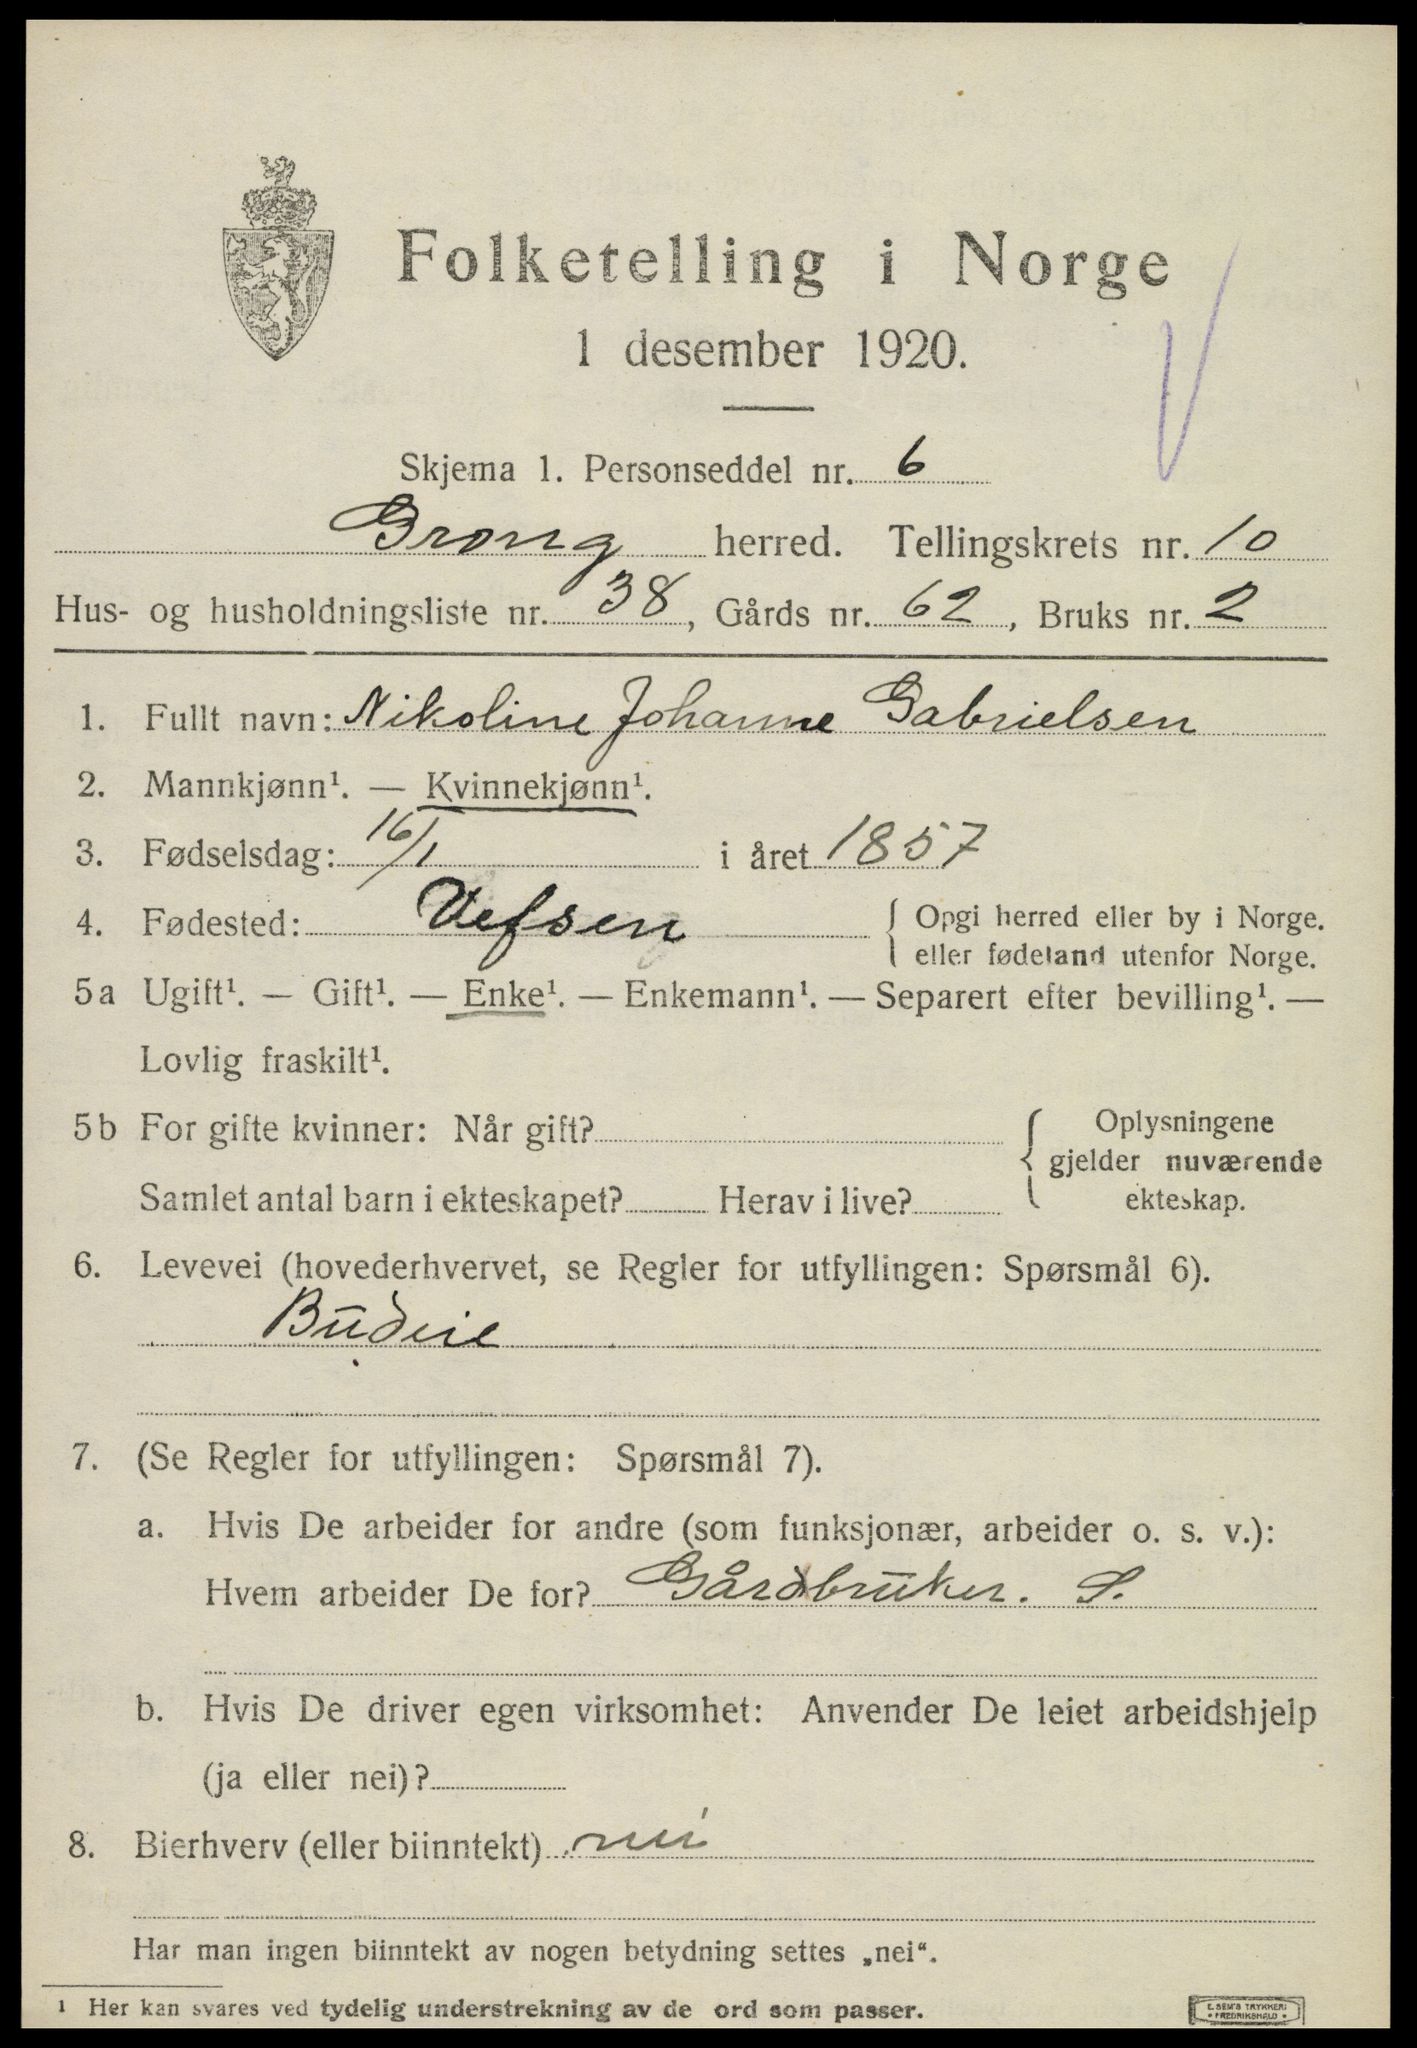 Folketelling i Norge
1 desember 1920.
Skjema 1. Personseddel nr. 6
Grong herred. Tellingskrets nr. 10
Hus- og husholdningsliste nr. 38, Gårds nr. 62, Bruks nr. 2
1. Fullt navn: Nikoline Johanne Gabrielsen
2. Mannkjønn¹. — Kvinnekjønn¹.
3. Fødselsdag: 16/1 i året 1857
4. Fødested: Vefsen { Opgi herred eller by i Norge.
eller fødeland utenfor Norge.
5a Ugift¹. — Gift¹. — Enke¹. — Enkemann¹. — Separert efter bevilling¹. —
Lovlig fraskilt¹.
5b For gifte kvinner: Når gift? { Oplysningene
gjelder nuværende
ekteskap.
Samlet antal barn i ekteskapet? Herav i live?
6. Levevei (hovederhvervet, se Regler for utfyllingen: Spørsmål 6).
Budeie
7. (Se Regler for utfyllingen: Spørsmål 7).
a. Hvis De arbeider for andre (som funksjonær, arbeider o. s. v.):
Hvem arbeider De for? Gårdbruker. S.
b. Hvis De driver egen virksomhet: Anvender De leiet arbeidshjelp
(ja eller nei)?
8. Bierhverv (eller biinntekt) nei
Har man ingen biinntekt av nogen betydning settes „nei“.
¹ Her kan svares ved tydelig understrekning av de ord som passer.
E. SEM'S TRYKKERI
• FREDRIKSHALD •